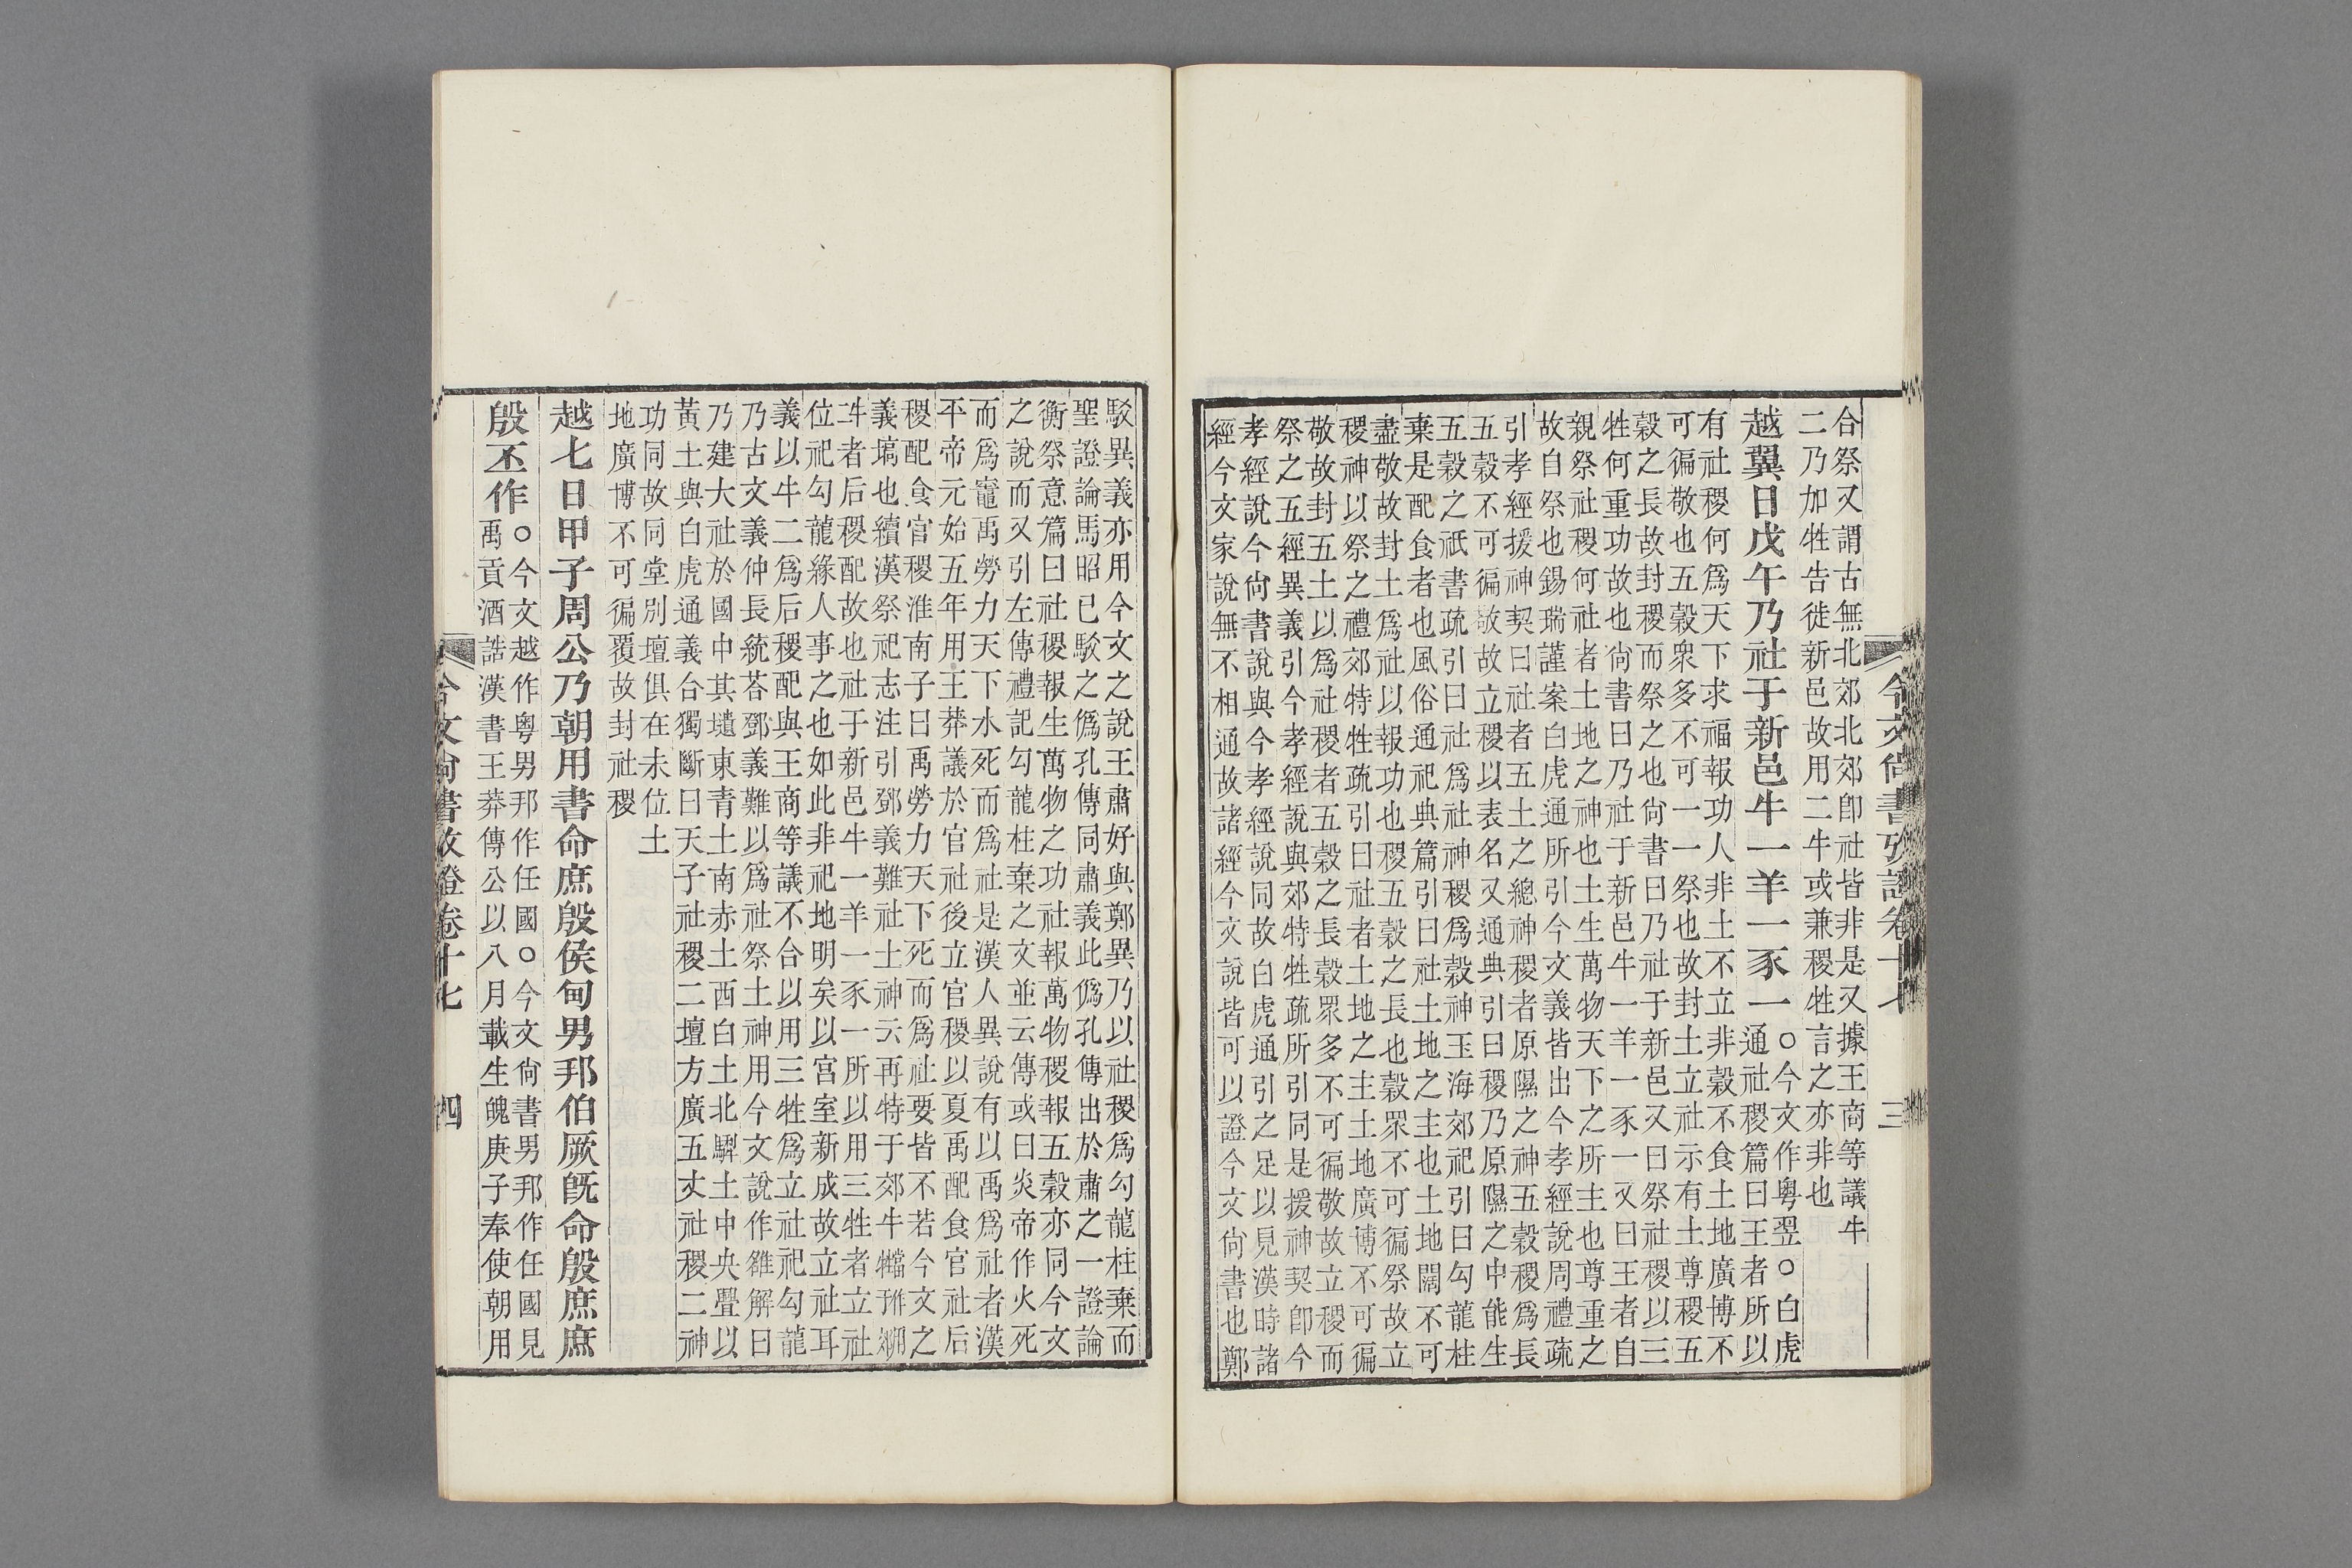 今文尚書攷證卷十七 三
合祭又謂古無北郊北郊卽社皆非是又據王商等議牛
二乃加牲告徙新邑故用二牛或兼稷牲言之亦非也
越翼日戊午乃社于新邑牛一羊一豕一
○今文作粤翌○白虎
通社稷篇曰王者所以
有社稷何爲天下求福報功人非土不立非穀不食土地廣博不
可徧敬也五穀衆多不可一一祭也故封土立社示有土尊稷五
穀之長故封稷而祭之也尙書曰乃社于新邑又曰祭社稷以三
牲何重功故也尙書曰乃社于新邑牛一羊一豕一又曰王者自
親祭社稷何社者土地之神也土生萬物天下之所主也尊重之
故自祭也錫瑞謹案白虎通所引今文義皆出今孝經說周禮疏
引孝經援神契曰社者五土之總神稷者原隰之神五穀稷爲長
五穀不可徧敬故立稷以表名又通典引曰稷乃原隰之中能生
五穀之祇書疏引曰社爲社神稷爲穀神玉海郊祀引曰勾龍柱
棄是配食者也風俗通祀典篇引曰社土地之主也土地闊不可
盡敬故封土爲社以報功也稷五穀之長也穀眾不可徧祭故立
稷神以祭之禮郊特牲疏引曰社者土地之主土地廣博不可徧
敬故封五土以爲社稷者五穀之長穀眾多不可徧敬故立稷而
祭之五經異義引今孝經說與郊特牲疏所引同是援神契卽今
孝經說今尙書說與今孝經說同故白虎通引之足以見漢時諸
經今文家說無不相通故諸經今文說皆可以證今文尙書也鄭
駁異義亦用今文之說王肅好與鄭異乃以社稷爲勾龍柱棄而
聖證論馬昭已駁之僞孔傳同肅義此僞孔傳出於肅之一證論
衡祭意篇曰社稷報生萬物之功社報萬物稷報五穀亦同今文
之說而又引左傳禮記勾龍柱棄之文並云傳或曰炎帝作火死
而爲竈禹勞力天下水死而爲社是漢人異說有以禹爲社者漢
平帝元始五年用王莽議於官社後立官稷以夏禹配食官社后
稷配食官稷淮南子曰禹勞力天下死而爲社要皆不若今文之
義塙也續漢祭祀志注引鄧義難社土神云再特于郊牛犠于稷
牛者后稷配故也社于新邑牛一羊一豕一所以用三牲者立社
位祀勾龍緣人事之也如此非祀地明矣以宮室新成故立社耳
義以牛二爲后稷配與王商等議不合以用三牲爲立社祀勾龍
乃古文義仲長統荅鄧義難以爲社祭土神用今文說作雒解曰
乃建大社於國中其壝東青土南赤土西白土北驪土中央疊以
黃土與白虎通義合獨斷曰天子社稷二壇方廣五丈社稷二神
功同故同堂別壇俱在未位土
地廣博不可徧覆故封社稷
越七日甲子周公乃朝用書命庶殷侯甸男邦伯厥旣命殷庶庶
殷丕作
○今文越作粤男邦作任國○今文尙書男邦作任國見
禹貢酒誥漢書王莽傳公以八月載生魄庚子奉使朝用
今文尚書攷證卷十七 四